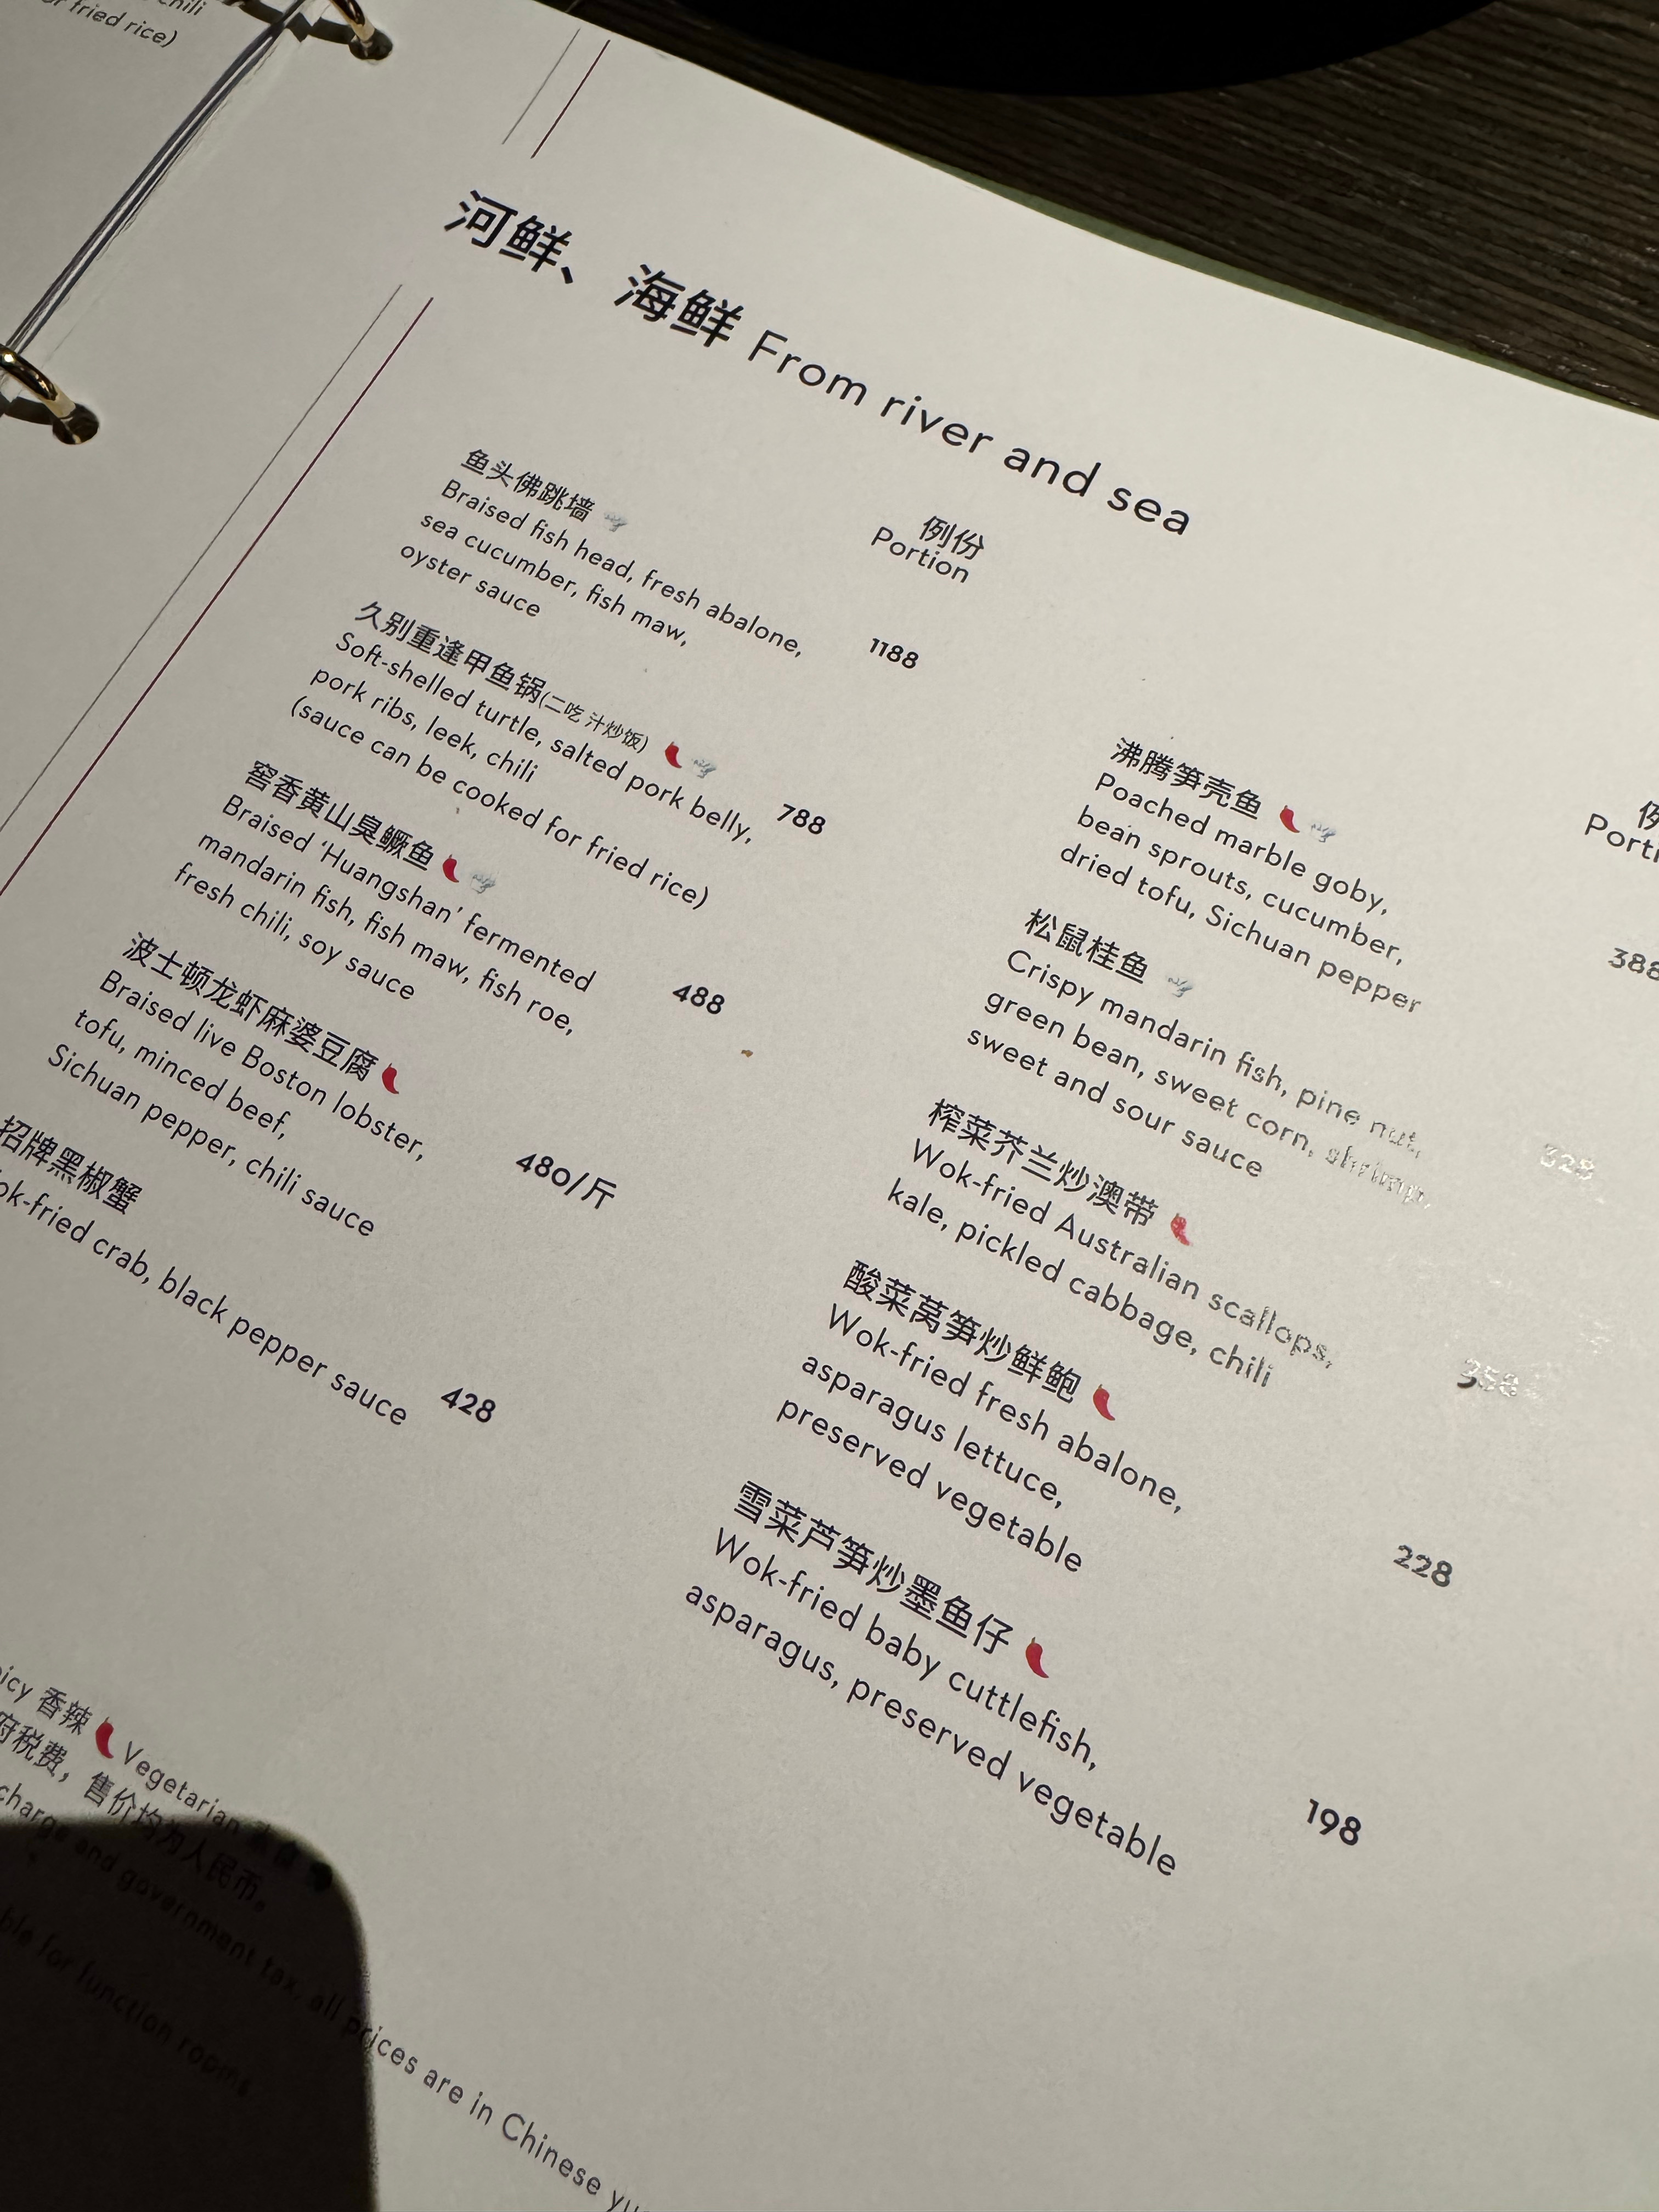 chili
or fried rice)
河鲜、海鲜 From river and sea
例份
Portion
鱼头佛跳墙
Braised fish head, fresh abalone,
sea cucumber, fish maw,
oyster sauce
1188
久别重逢甲鱼锅(二吃 汁炒饭)
Soft-shelled turtle, salted pork belly,
pork ribs, leek, chili
(sauce can be cooked for fried rice)
788
窖香黄山臭鳜鱼
Braised ‘Huangshan’ fermented
mandarin fish, fish maw, fish roe,
fresh chili, soy sauce
488
波士顿龙虾麻婆豆腐
Braised live Boston lobster,
tofu, minced beef,
Sichuan pepper, chili sauce
480/斤
招牌黑椒蟹
ok-fried crab, black pepper sauce
428
例
Porti
沸腾笋壳鱼
Poached marble goby,
bean sprouts, cucumber,
dried tofu, Sichuan pepper
388
松鼠桂鱼
Crispy mandarin fish, pine nut,
green bean, sweet corn, shrimp,
sweet and sour sauce
328
榨菜芥兰炒澳带
Wok-fried Australian scallops,
kale, pickled cabbage, chili
358
酸菜莴笋炒鲜鲍
Wok-fried fresh abalone,
asparagus lettuce,
preserved vegetable
228
雪菜芦笋炒墨鱼仔
Wok-fried baby cuttlefish,
asparagus, preserved vegetable
198
icy 香辣 Vegetarian
府税费，售价均为人民币。
charge and government tax, all prices are in Chinese yu
ble for function rooms.